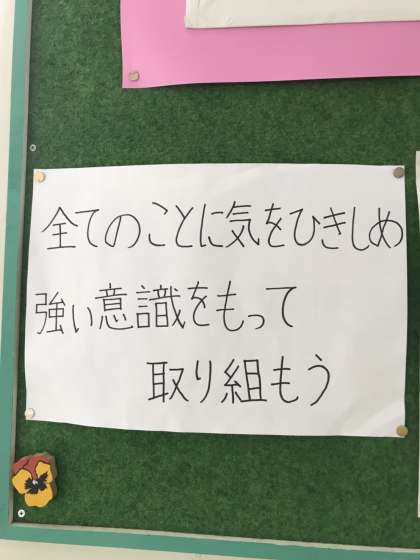 全てのことに気をひきしめ
強い意識をもって
取り組もう